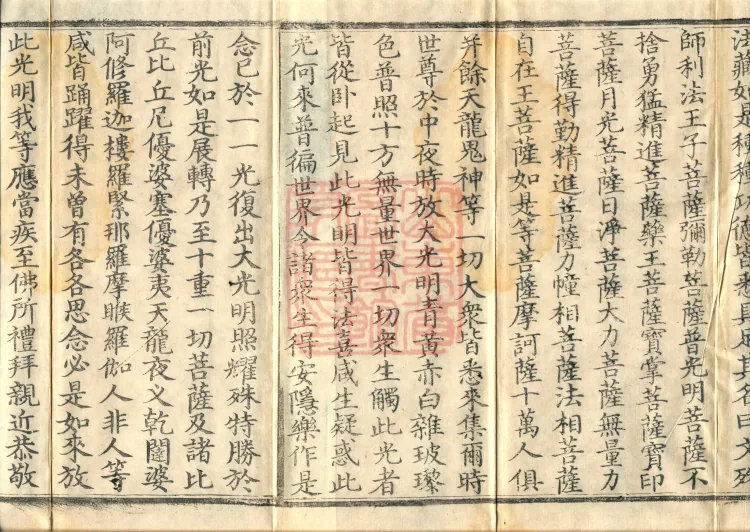 法藏如是種種功德皆悉具足其名曰文殊
師利法王子菩薩彌勒菩薩普光明菩薩不
捨勇猛精進菩薩藥王菩薩寶掌菩薩寶印
菩薩月光菩薩日淨菩薩大力菩薩無量力
菩薩得勤精進菩薩力幢相菩薩法相菩薩
自在王菩薩如是等菩薩摩訶薩十萬人俱
并餘天龍鬼神等一切大衆皆悉來集爾時
世尊於中夜時放大光明青黃赤白雜玻瓈
色普照十方無量世界一切衆生觸此光者
皆從卧起見此光明皆得法喜咸生疑惑此
光何來普徧世界令諸衆生得安隱樂作是
念已於一一光復出大光明照耀殊特勝於
前光如是展轉乃至十重一切菩薩及諸比
丘比丘尼優婆塞優婆夷天龍夜叉乾闥婆
阿修羅迦樓羅緊那羅摩睺羅伽人非人等
咸皆踊躍得未曾有各各思念必是如來放
此光明我等應當疾至佛所禮拜親近恭敬